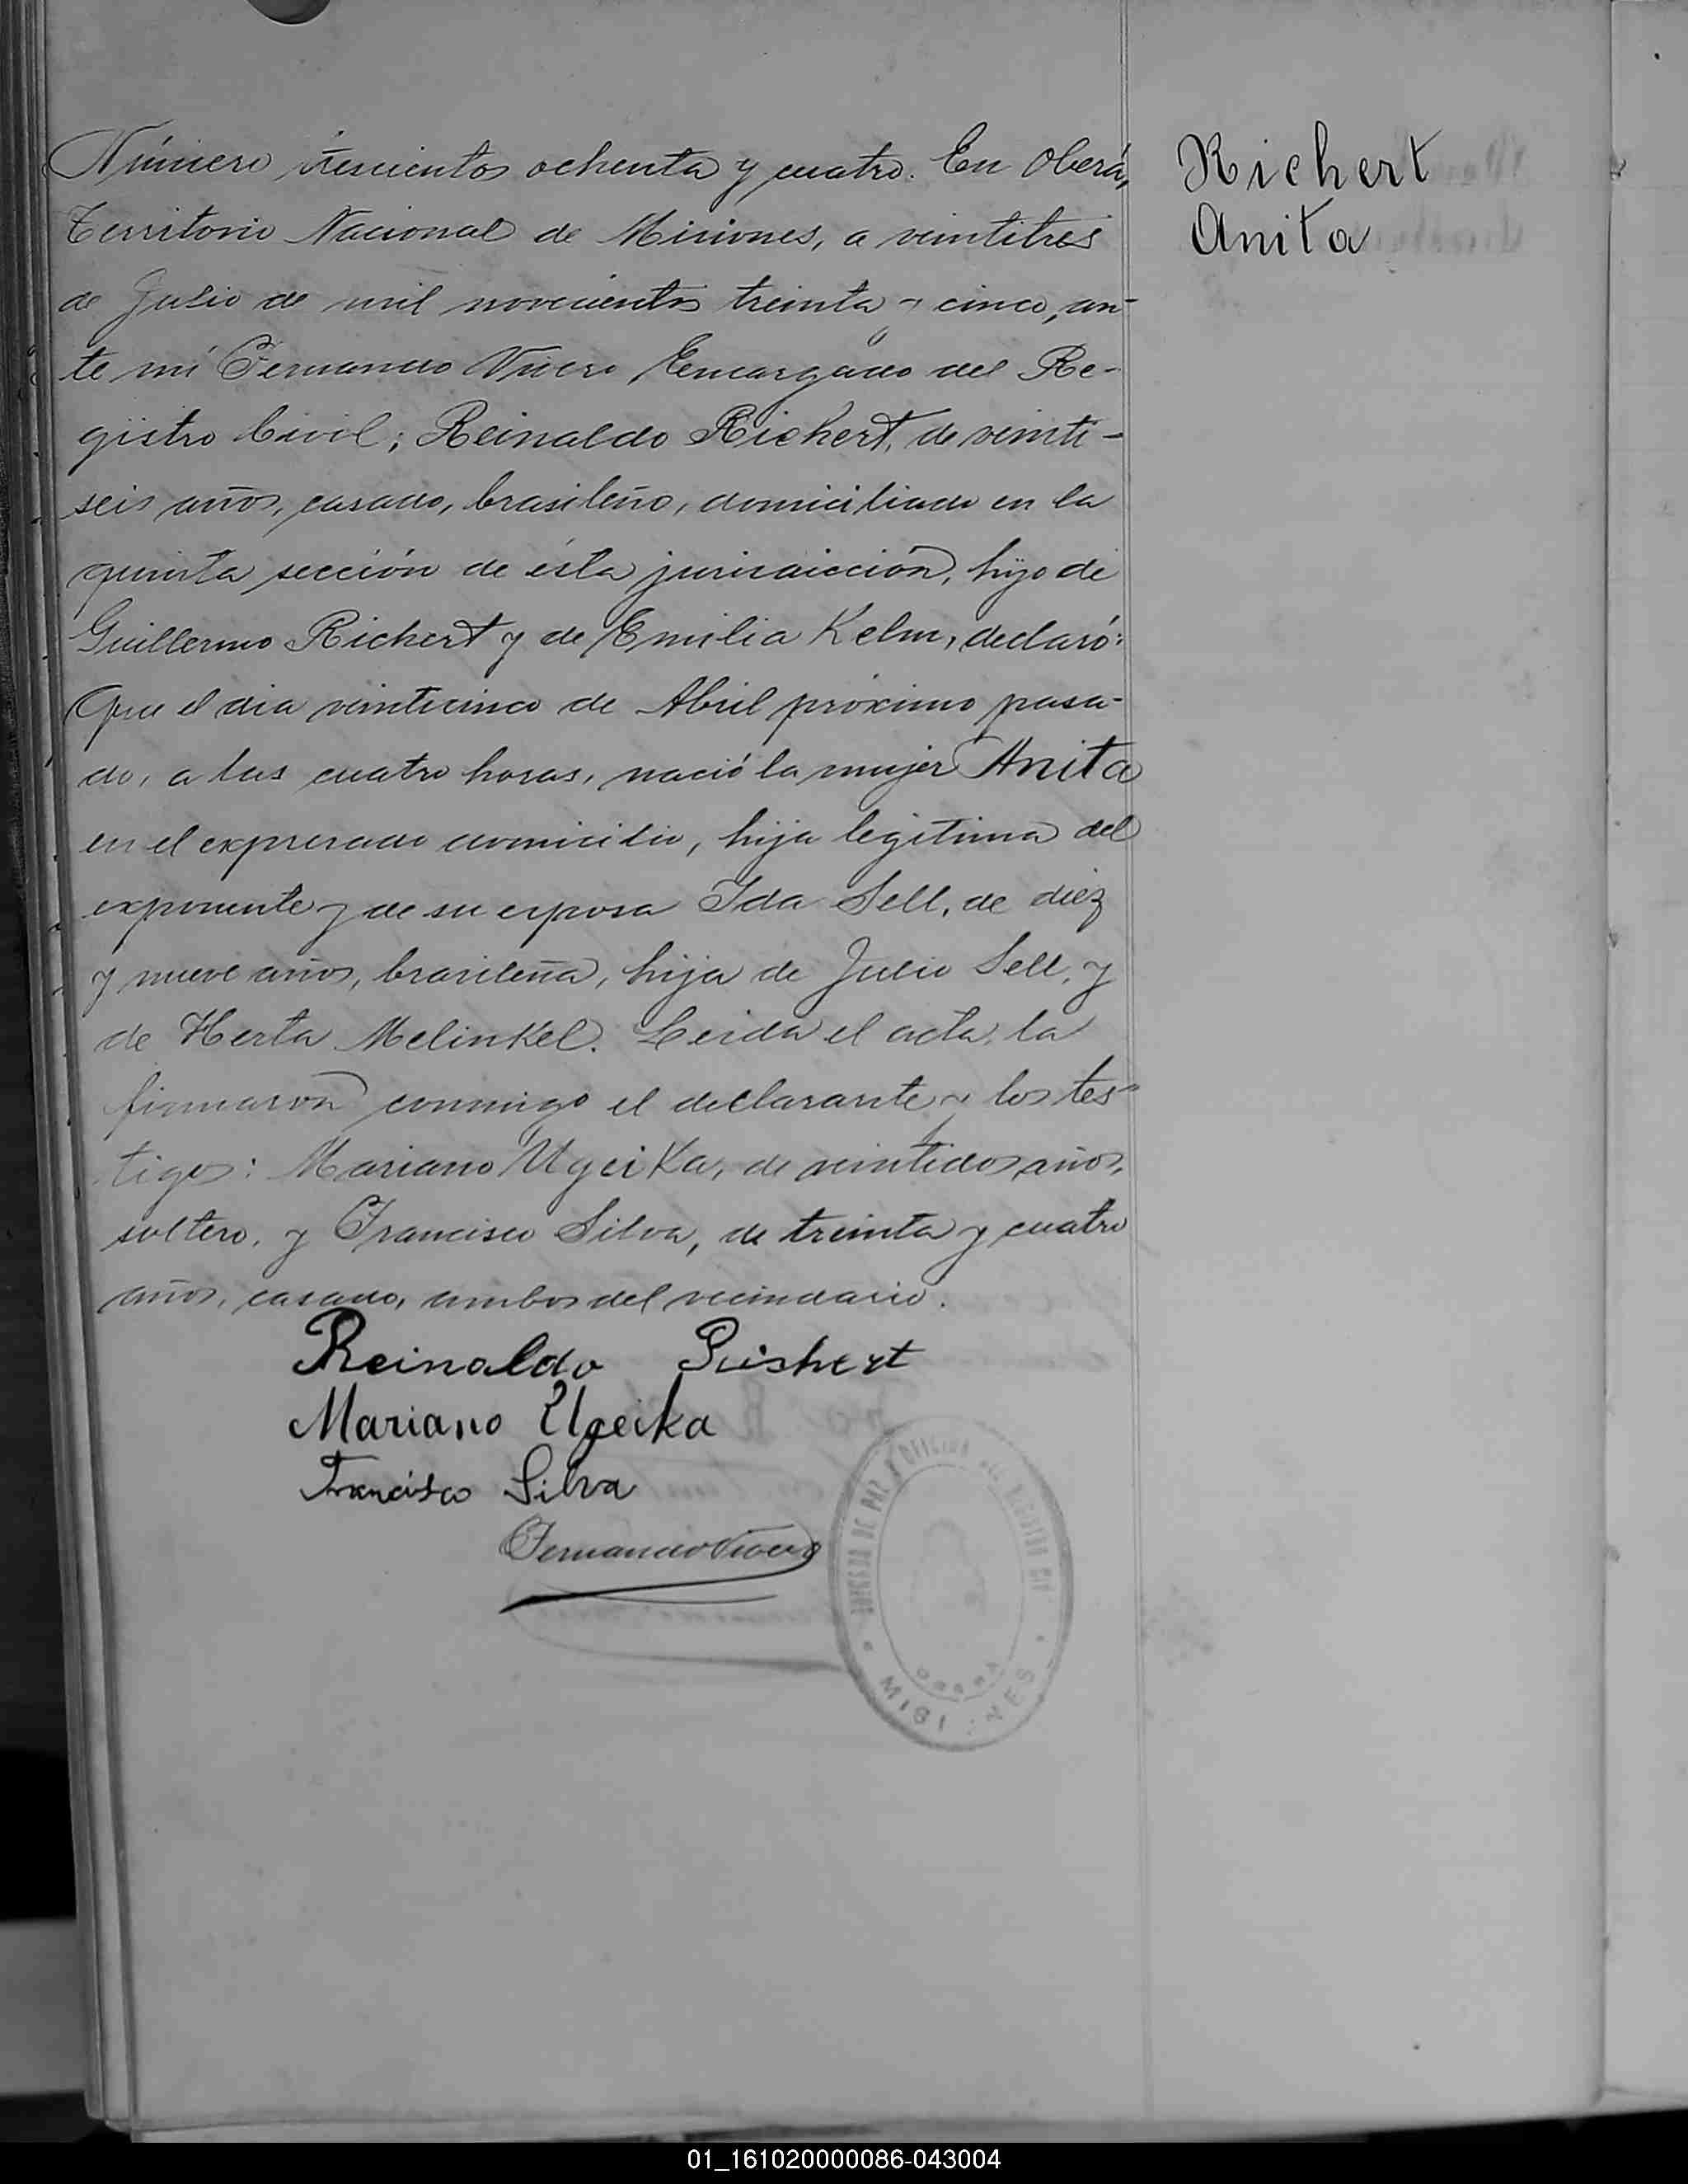 Número trescientos ochenta y cuatro. En Oberá,
Territorio Nacional de Misiones, a veintitres
de Julio de mil novecientos treinta y cinco, an-
te mí Fernando Vivero Encargado del Re-
gistro Civil; Reinaldo Richert, de veinti-
seis años, casado, brasileño, domiciliado en la
quinta sección de ésta jurisdicción, hijo de
Guillermo Richert y de Emilia Kelm, declaró:
Que el dia veinticinco de Abril próximo pasa-
do, a las cuatro horas, nació la mujer Anita
en el expresado domicilio, hija legitima del
exponente y de su esposa Ida Sell, de diez
y nueve años, brasileña, hija de Julio Sell, y
de Herta Melinkel. Leida el acta, la
firmaron conmigo el declarante y los tes-
tigos: Mariano Ugeika, de veintidos años,
soltero, y Francisco Silva, de treinta y cuatro
años, casado, ambos del vecindario.
Reinaldo Rishert
Mariano Ugeika
Francisco Silva
Fernando Vivero
Richert
Anita
DE PAZ Y OFICINA
MISIONES
01_161020000086-043004